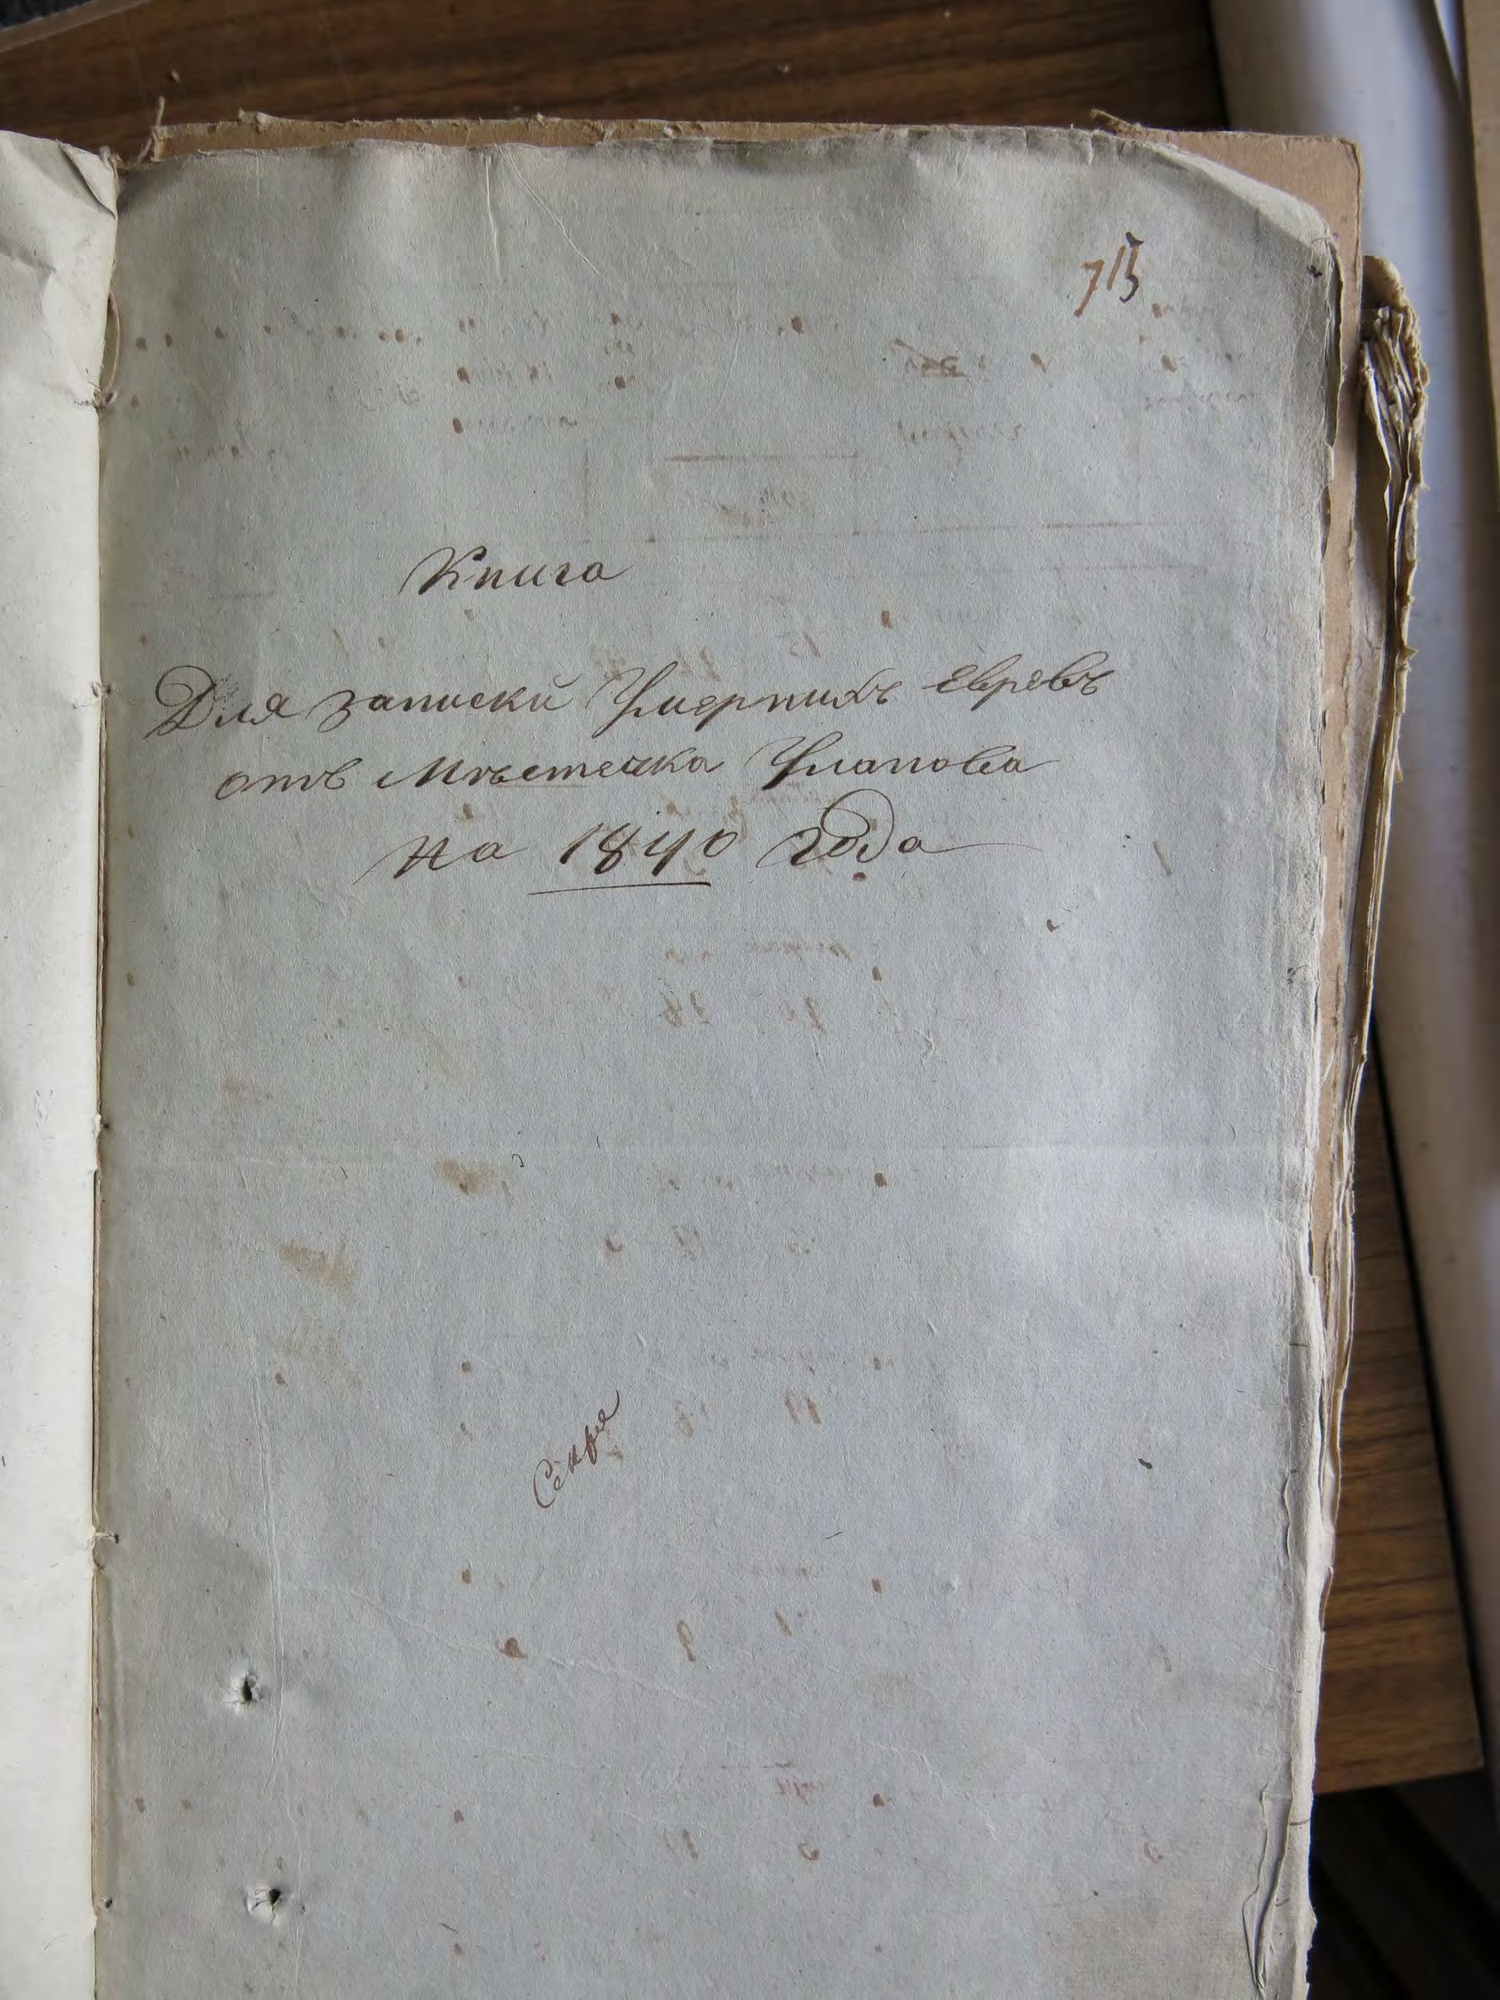 713
Книга
Для записки Умерших Евреев
отъ Мѣстечка Уланова
на 1840 года
Секре